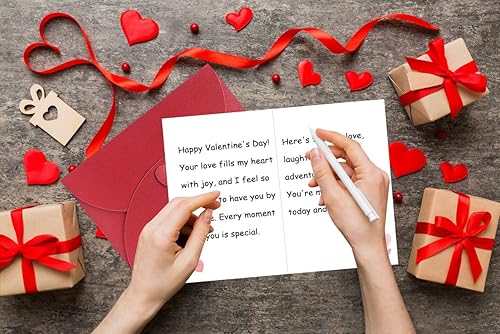 Happy Valentine's Day!
Your love fills my heart
with joy, and I feel so
to have you by
Every moment
you is special.
Here's love,
laught
advent
You're m
today and